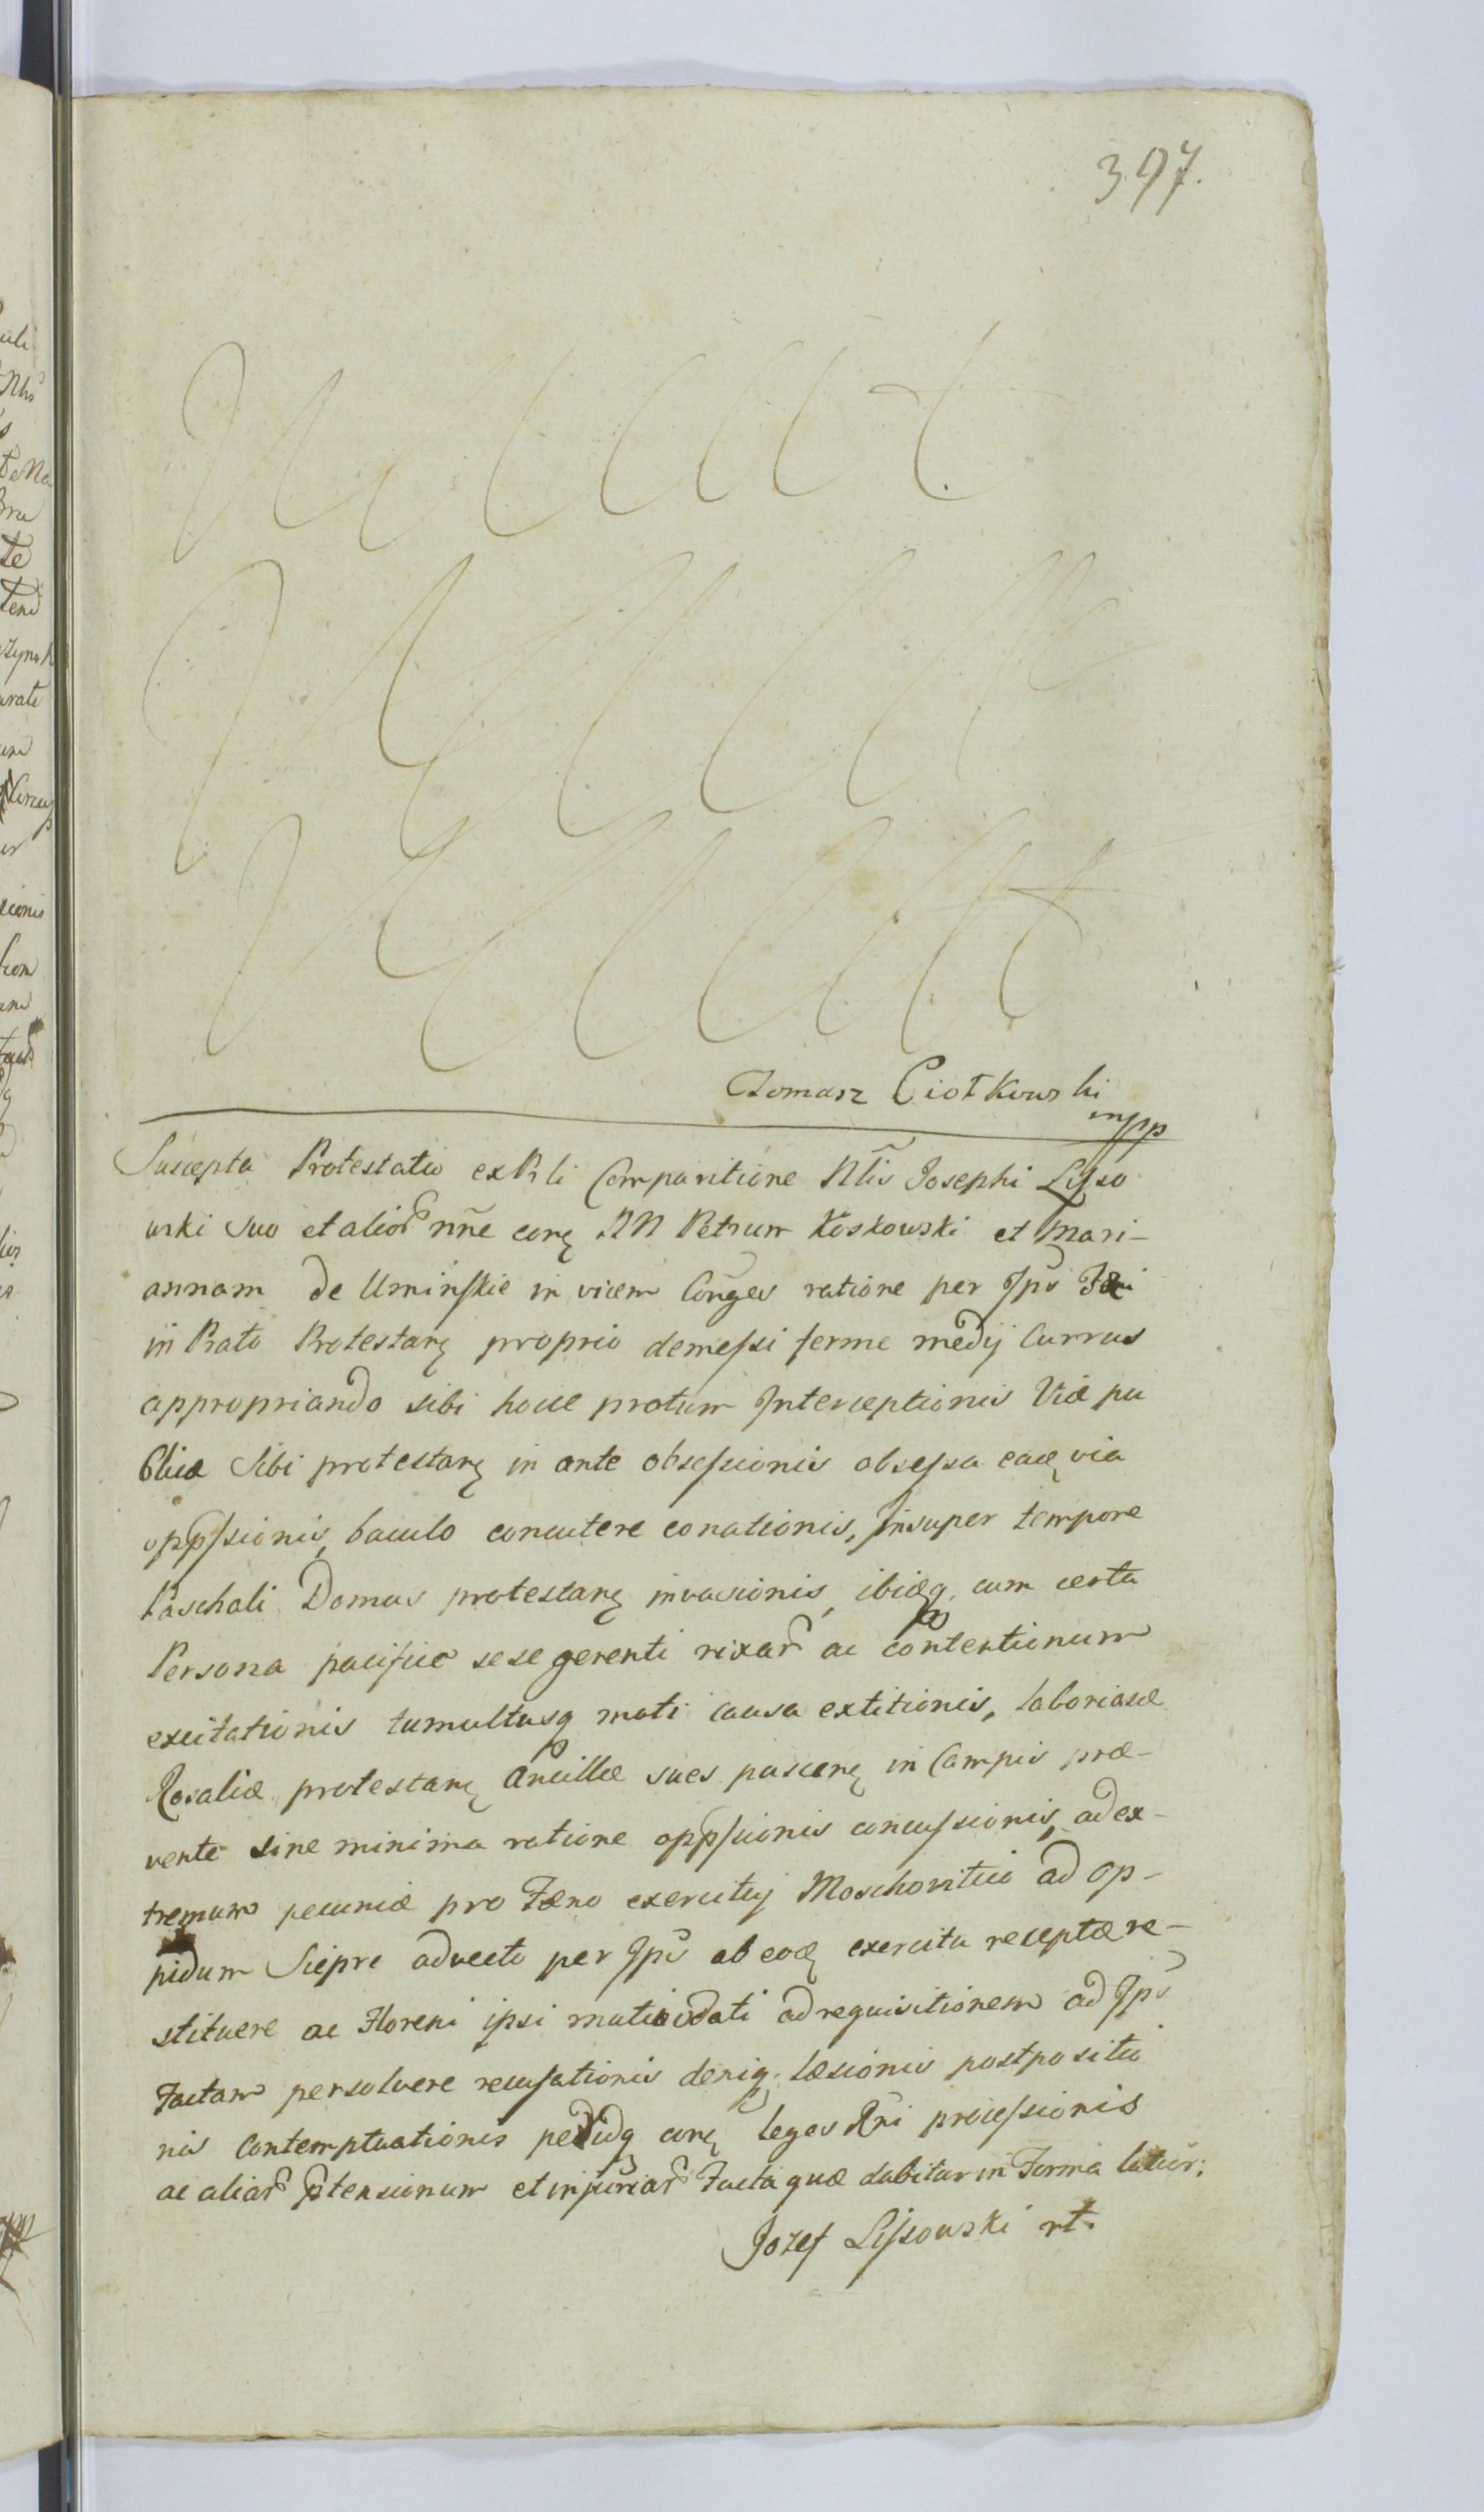 397.
Tomasz Ciotkowski
mpp
Suscepta Protestatio ex Prli Comparitione Nlis Josephi Lysso
wski suo et alior nñe conq NN Petrum Koskowski et Mari-
annam de Umińskie in vicem Conges ratione per Ips Fæni
in Prato Protestanq proprio demessi ferme medij Currus
appropriando sibi hocce pratum Interceptionis Viæ pu
blicæ Sibi protestanq in ante obsessionis obsessa eaq via
oppssionis, baculo concutere conationis, Insuper tempore
Paschali Domus protestanq invasionis, ibidq. cum certa
Persona pacifice sese gerenti rixar ac contentionum
excitationis tumultusq moti causa extitionis, laboriosæ
Rosaliæ protestanq Ancillæ sues pascenq in Campis præ-
vente sine minima ratione oppssionis concussionis, ad ex-
tremum pecuniæ pro Fæno exercituj Moschovitico ad Op-
pidum Siepre advecto per Ips ab eoq exercitu receptæ re-
stituere ac Floreni ipsi mutuo dati ad requisitionem ad Ips
Factam persolvere recusationis deniq. læsionis postpositio
nis Contemptuationis pedidq conq leges Rni processionis
ac aliar ptensionum et injuriar Facta quæ dabitur in Forma latior:
Jozef Lissowski rt.